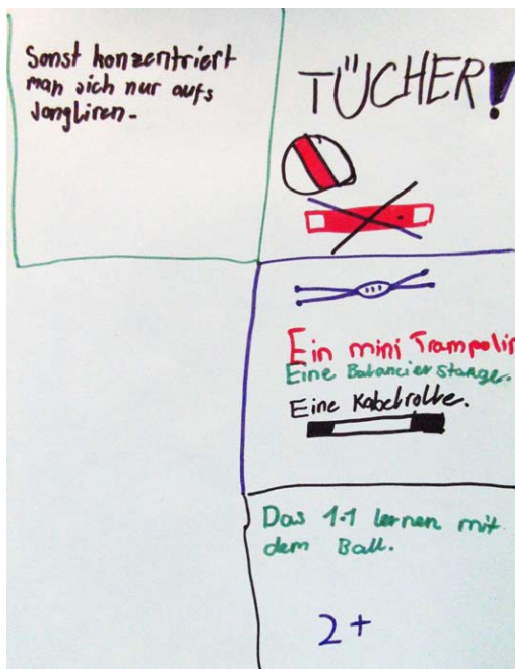 Sonst konzentriert
man sich nur aufs
Jongliren.
TÜCHER!
Ein mini Trampolin
Eine Balancierstange.
Eine Kabelrolle.
Das 1·1 lernen mit
dem Ball.
2+